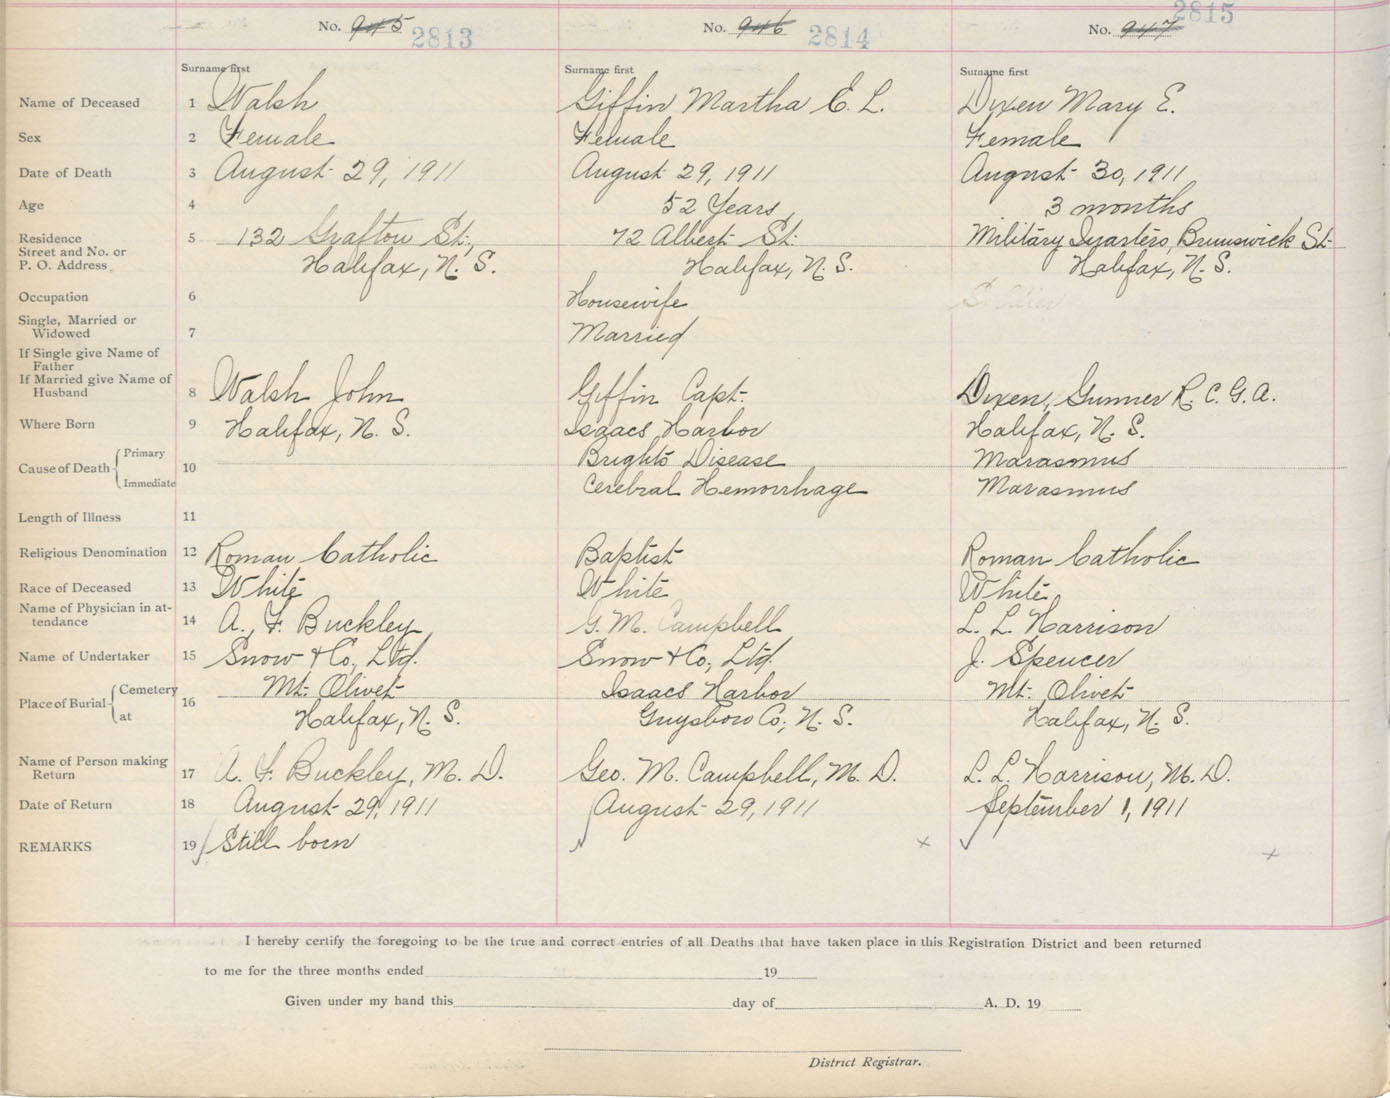 No. 945 2813 No. 946 2814 No. 947 2815
Surname first Surname first Surname first
Name of Deceased 1 Walsh Giffin Martha E. L. Dixen Mary E.
Sex 2 Female Female Female
Date of Death 3 August 29, 1911 August 29, 1911 August 30, 1911
Age 4 52 Years 3 months
Residence 5 132 Grafton St., 72 Albert St. Military Quarters, Brunswick St.
Street and No. or
P. O. Address. Halifax, N. S. Halifax, N. S. Halifax, N. S.
Occupation 6 Housewife Soldier
Single, Married or
Widowed 7 Married
If Single give Name of
Father
If Married give Name of
Husband 8 Walsh John Giffin Capt. Dixen, Gunner R. C. G. A.
Where Born 9 Halifax, N. S. Isaacs Harbor Halifax, N. S.
Cause of Death 10 Primary Brights Disease Marasmus
Immediate Cerebral Hemorrhage Marasmus
Length of Illness 11
Religious Denomination 12 Roman Catholic Baptist Roman Catholic
Race of Deceased 13 White White White
Name of Physician in at-
tendance 14 A. F. Buckley G. M. Campbell L. L. Harrison
Name of Undertaker 15 Snow & Co., Ltd. Snow & Co., Ltd. J. Spencer
Place of Burial 16 Cemetery Mt. Olivet Isaacs Harbor Mt. Olivet
at Halifax, N. S. Guysboro Co., N. S. Halifax, N. S.
Name of Person making
Return 17 A. F. Buckley, M. D. Geo. M. Campbell, M. D. L. L. Harrison, M. D.
Date of Return 18 August 29, 1911 August 29, 1911 September 1, 1911
REMARKS 19 Still born
I hereby certify the foregoing to be the true and correct entries of all Deaths that have taken place in this Registration District and been returned
to me for the three months ended 19
Given under my hand this day of A. D. 19
District Registrar.